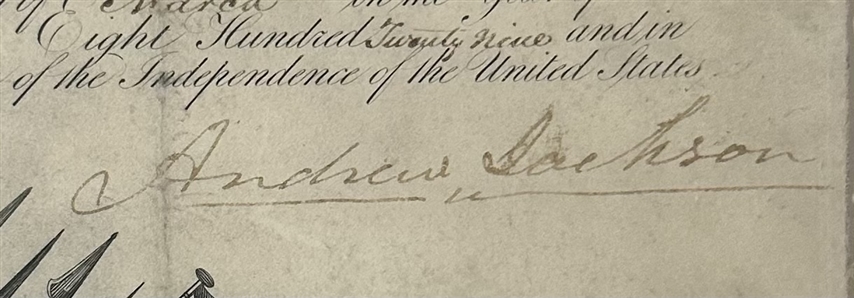 of March in the Year of
Eight Hundred Twenty nine and in
of the Independence of the United States
Andrew Jackson